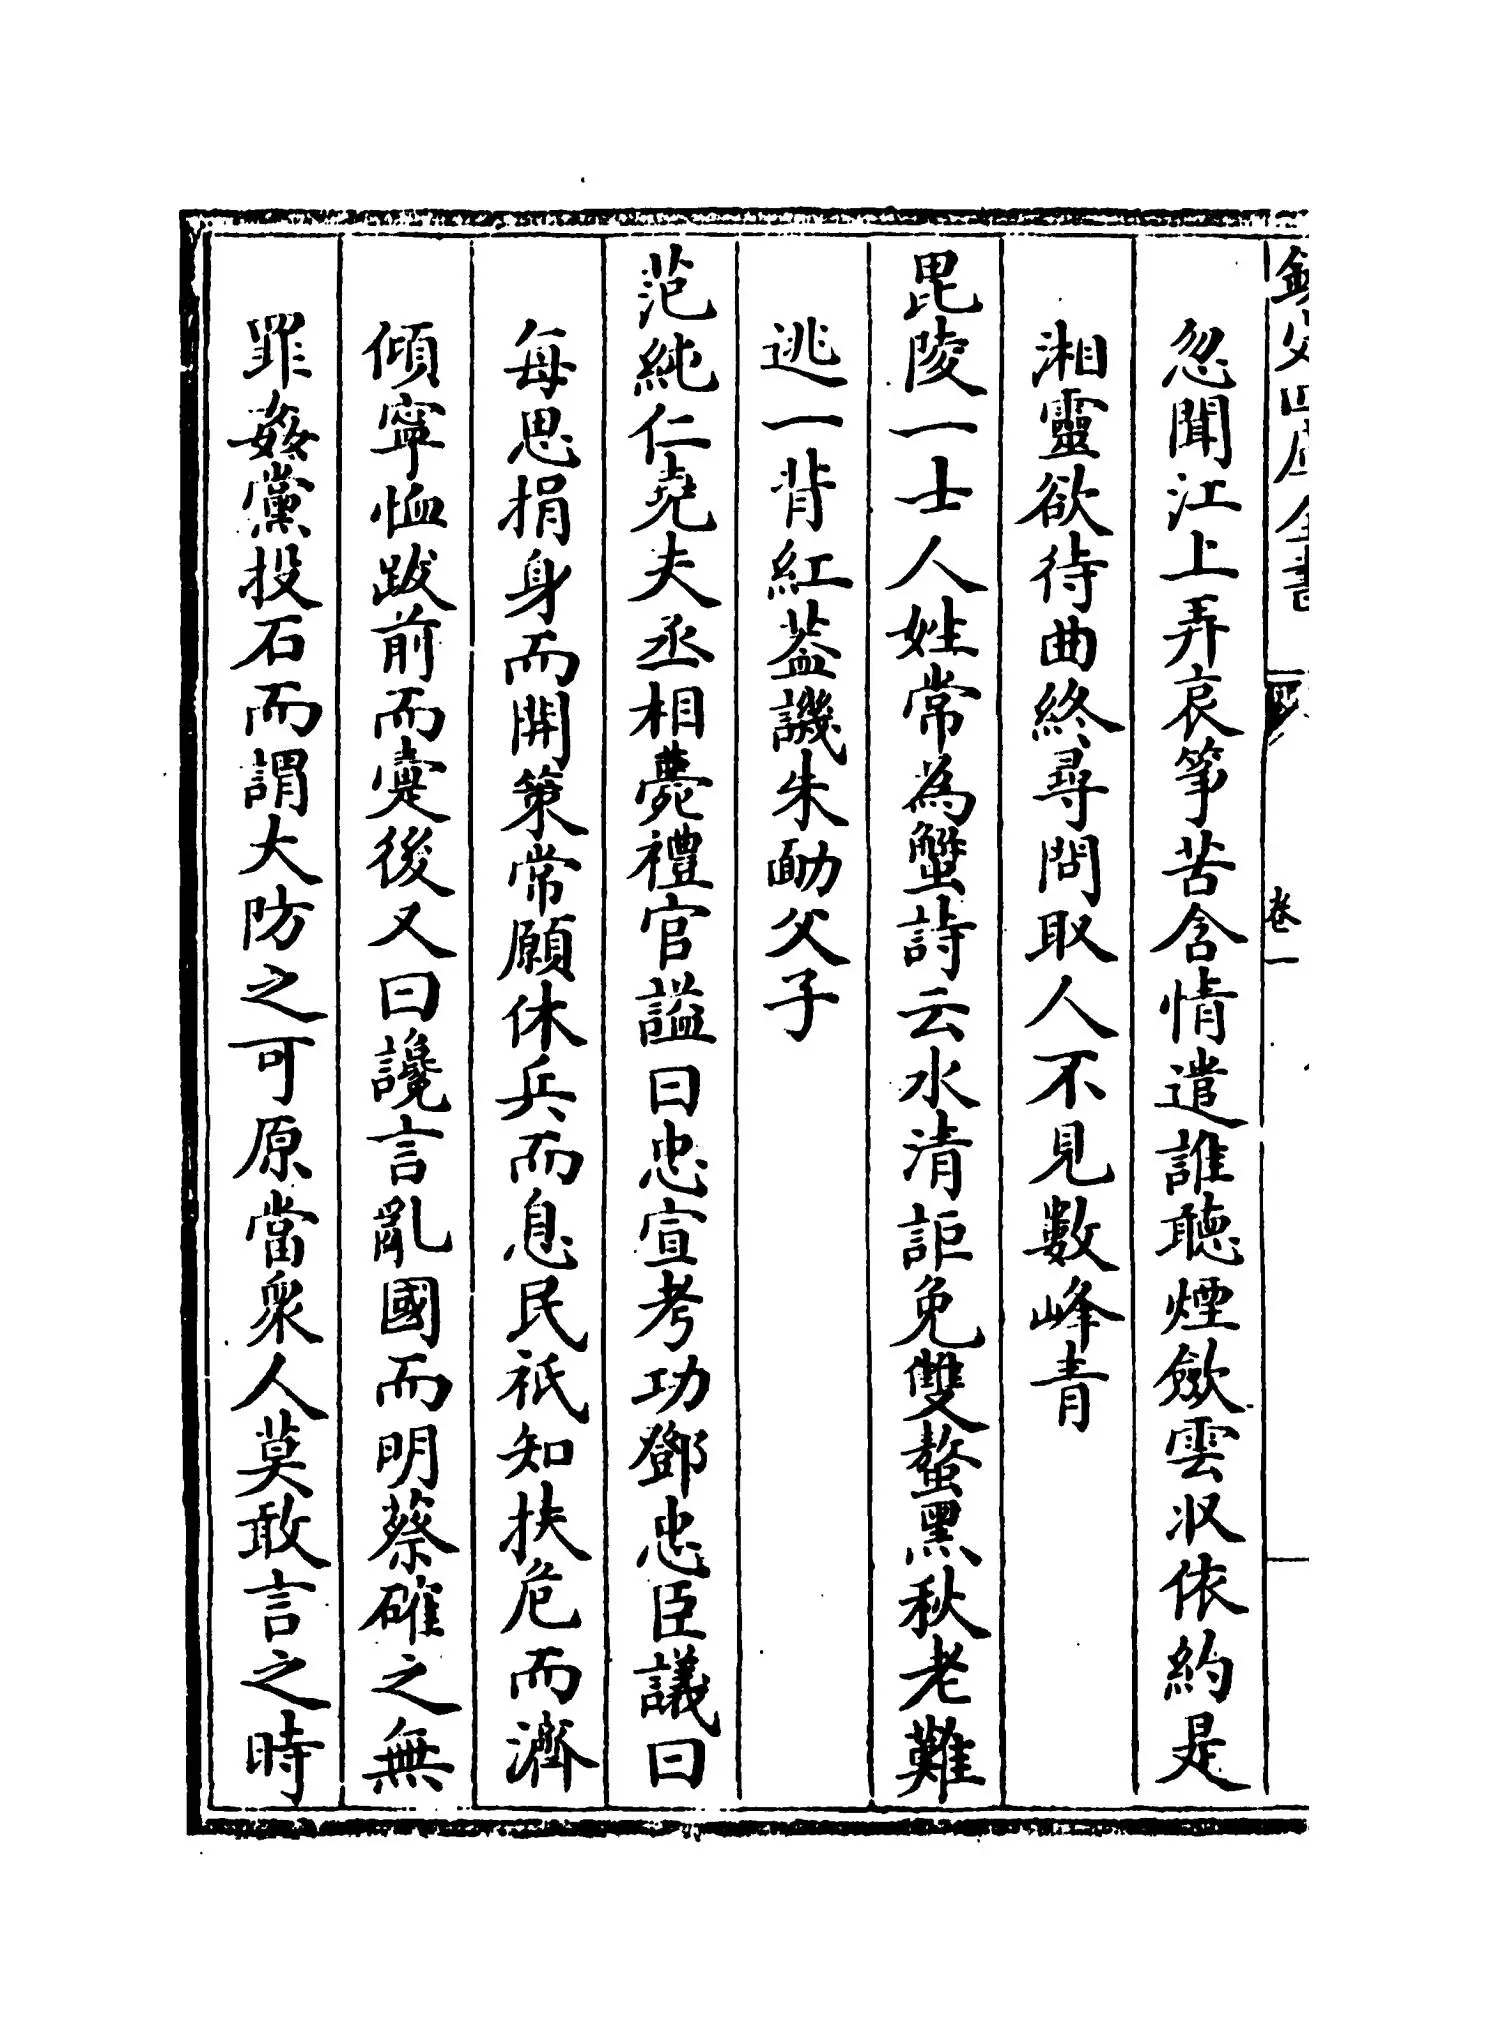 欽定四庫全書
卷一
忽聞江上弄哀箏苦含情遣誰聽煙斂雲收依約是
湘靈欲待曲終尋問取人不見數峰青
毘陵一士人姓常為蟹詩云水清詎免雙螯黑秋老難
逃一背紅葢譏朱勔父子
范純仁堯夫丞相薨禮官謚曰忠宣考功鄧忠臣議曰
每思捐身而開策常願休兵而息民祇知扶危而濟
傾寧恤跋前而疐後又曰讒言亂國而明蔡確之無
罪姦黨投石而謂大防之可原當衆人莫敢言之時